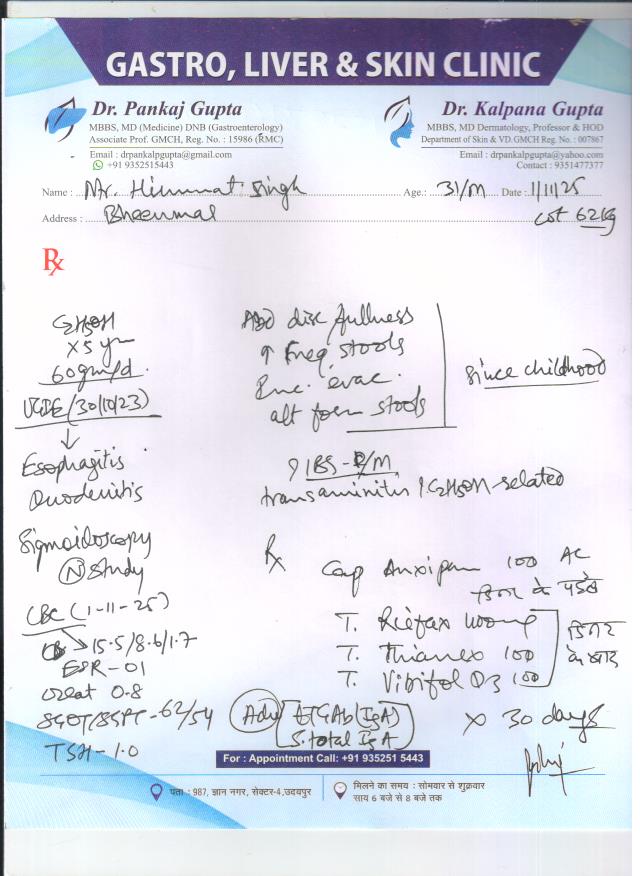 GASTRO, LIVER & SKIN CLINIC
Dr. Pankaj Gupta
MBBS, MD (Medicine) DNB (Gastroenterology)
Associate Prof. GMCH, Reg. No. : 15986 (RMC)
Email : drpankalpgupta@gmail.com
+91 9352515443
Dr. Kalpana Gupta
MBBS, MD Dermatology, Professor & HOD
Department of Skin & VD. GMCH Reg. No. : 007867
Email : drpankalpgupta@yahoo.com
Contact : 9351477377
Name : Mr. Himmat Singh Age.: 31/M Date : 1/11/25
Address : Bheenmal 62 kg
Rx
C2H5OH
x 5 yr
60gm/d.
UGIE (30/10/23)
↓
Esophagitis
Duodenitis
Sigmoidoscopy
(N) Study
CBC (1-11-25)
15.5/8.6/1.7
ESR - 01
creat 0.8
SGOT/SGPT - 62/54
TSH - 1.0
Abd disc fullness
↑ Freq. stools
Inc. evac.
alt form stools
since childhood
? IBS - /M
transaminitis ? C2H5OH-related
Rx
Cap 100 AC
के पहले
T. 
T. 100
T. D3 100
डिनर के बाद
x 30 days
Adv tTGAb (IgA)
S. total IgA
For : Appointment Call: +91 935251 5443
पता : 987, ज्ञान नगर, सेक्टर-4, उदयपुर
मिलने का समय : सोमवार से शुक्रवार
साय 6 बजे से 8 बजे तक